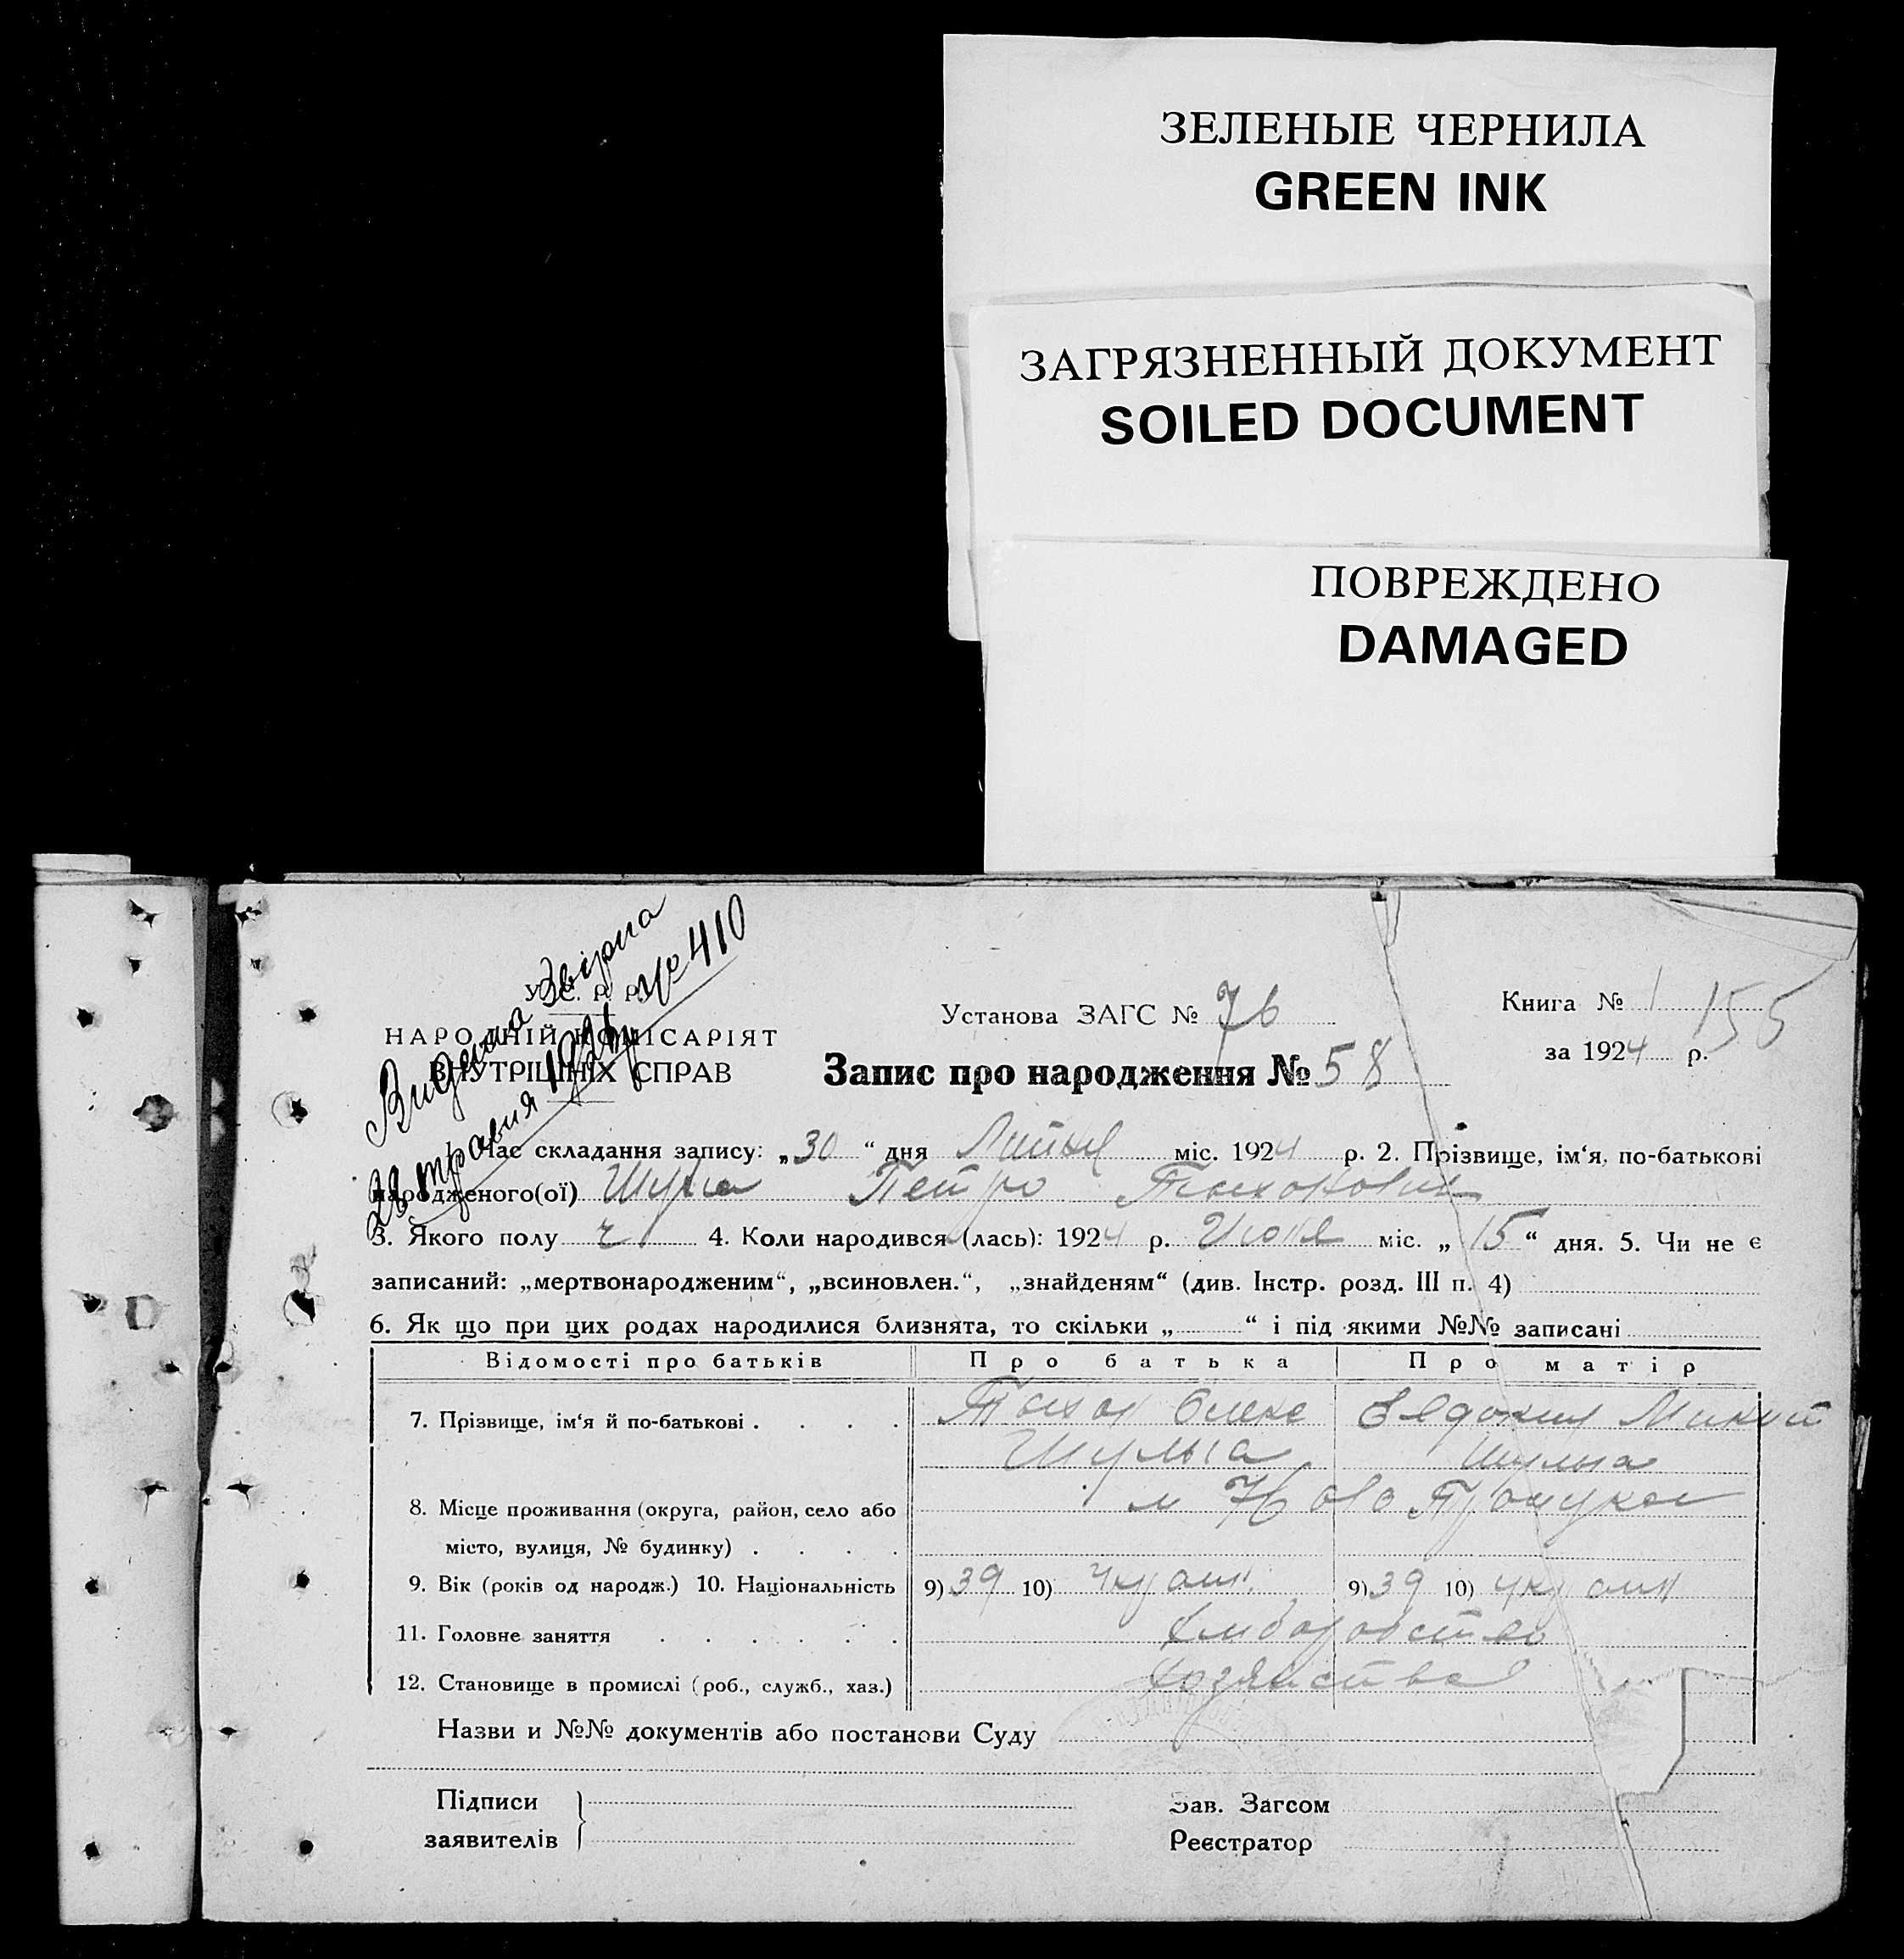 ЗЕЛЕНЫЕ ЧЕРНИЛА
GREEN INK
ЗАГРЯЗНЕННЫЙ ДОКУМЕНТ
SOILED DOCUMENT
ПОВРЕЖДЕНО
DAMAGED
Видана
28 травня 192 № 410
У. С. Р. Р.
НАРОДНІЙ КОМІСАРІЯТ
ВНУТРІШНІХ СПРАВ
Установа ЗАГС № 76
Книга № 1 155
за 1924 р.
Запис про народження № 58
Час складання запису: „30“ дня міс. 1924 р. 2. Прізвище, ім‘я, по-батькові
народженого(ої) Шульга Петро Тихонович
3. Якого полу ч 4. Коли народився (лась): 1924 р. міс. „15“ дня. 5. Чи не є
записаний: „мертвонародженим“, „всиновлен.“, „знайденям“ (див. Інстр. розд. III п. 4)
6. Як що при цих родах народилися близнята, то скільки „ “ і під якими №№ записані
Відомості про батьків Про батька Про матір
7. Прізвище, ім‘я й по-батькові . . . . Тихон Олекс
Шульга Шульга
8. Місце проживання (округа, район, село або
місто, вулиця, № будинку) . . . .
9. Вік (років од народж.) 10. Національність 9) 39 10) 9) 39 10)
11. Головне заняття . . . . . .
12. Становище в промислі (роб., служб., хаз.)
Назви и №№ документів або постанови Суду
Підписи
заявителів
Зав. Загсом
Реєстратор